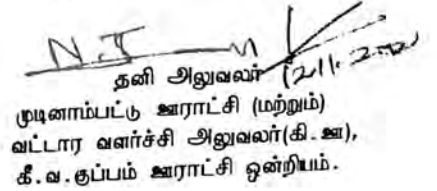 தனி அலுவலர்
முடினாம்பட்டு ஊராட்சி (மற்றும்)
வட்டார வளர்ச்சி அலுவலர்(கி.ஊ),
கீ.வ.குப்பம் ஊராட்சி ஒன்றியம்.